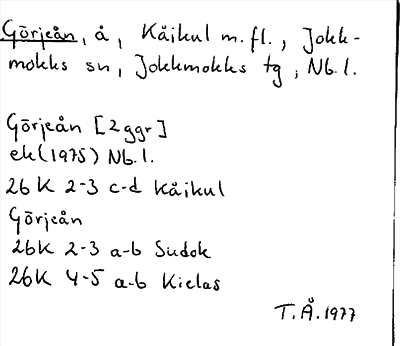 Görjeån, å, Kåikul m.fl., Jokk-
mokks sn, Jokkmokks tg, Nb.l.
Görjeån [2ggr]
ek(1975) Nb.l.
26K 2-3 c-d Kåikul
Görjeån
26K 2-3 a-b Sudok
26K 4-5 a-b Kielas
T.Å.1977